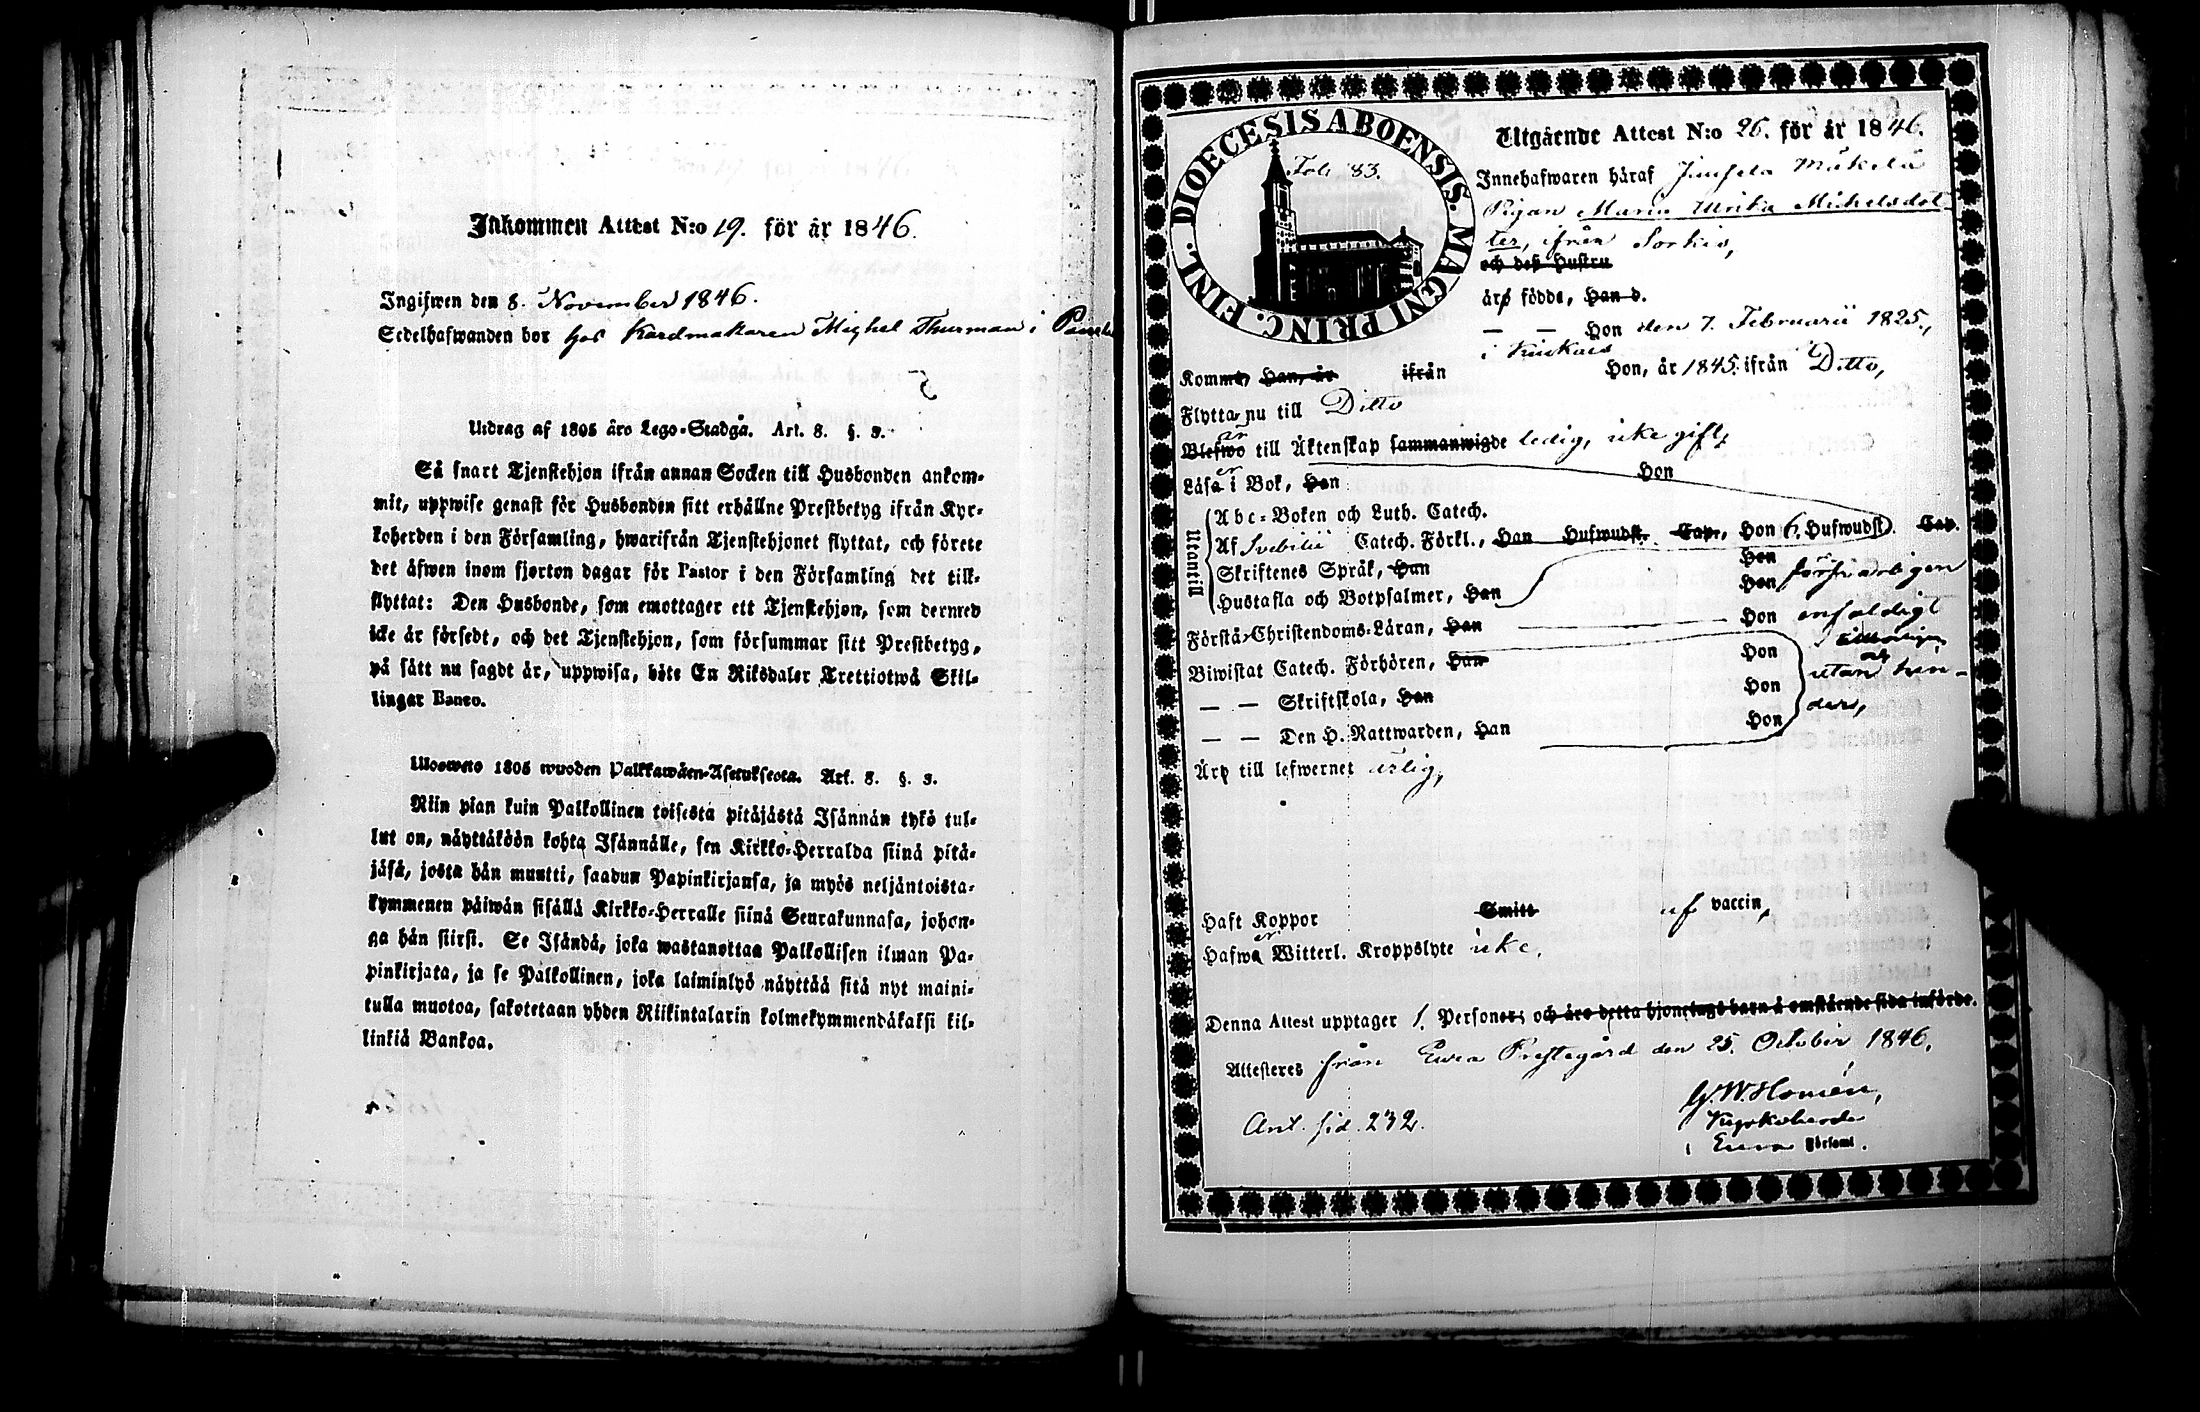 Inkommen Attest N:o 19. för år 1846.
Ingifwen den 8. November 1846.
Sedelhafwanden bor hos Kardmakaren Mighel Thurman i
Utdrag af 1805 års Lego-Stadga. Art. 8. §. 3.
Så snart Tjenstehjon ifrån annan Socken till Husbonden ankom-
mit, uppwise genast för Husbonden sitt erhållne Prestbetyg ifrån Kyr-
koherden i den Församling, hwarifrån Tjenstehjonet flyttat, och förete
det äfwen inom fjorton dagar för Pastor i den Församling det till-
flyttat: Den Husbonde, som emottager ett Tjenstehjon, som dermed
icke är försedt, och det Tjenstehjon, som försummar sitt Prestbetyg,
på sätt nu sagdt är, uppwisa, böte En Riksdaler Trettiotwå Skil-
lingar Banco.
Ulosweto 1805 wuoden Palkkawäen-Asetuksesta. Art. 8. §. 3.
Niin pian kuin Palkollinen toisesta pitäjästä Isännän tykö tul-
lut on, näyttäköön kohta Isännälle, sen Kirkko-Herralda siinä pitä-
jäsä, josta hän muutti, saadun Papinkirjansa, ja myös neljäntoista-
kymmenen päiwän sisällä Kirkko-Herralle siinä Seurakunnasa, johon-
ga hän siirsi. Se Isändä, joka wastanottaa Palkollisen ilman Pa-
pinkirjata, ja se Palkollinen, joka laiminlyö näyttää sitä nyt maini-
tulla muotoa, sakotetaan yhden Riikintalarin kolmekymmendäkaksi kil-
linkiä Bankoa.
DIOECESIS ABOENSIS. MAGNI PRINC. FINL.
Fol. 83.
Utgående Attest N:o 26. för år 1846.
Innehafwaren häraf Mäkelä
Pigan Maria Ulrika Michelsdot
ter, ifrån Sorkis,
och dess Hustru
äro födde, Han d.
— — Hon den 7. Februarii 1825,
i Kiukais
Komne, Han, år ifrån Hon, år 1845. ifrån Ditto,
Flytta nu till Ditto
Blefwo till Äktenskap sammanwigde ledig, icke gift,
Läsa i Bok, Han Hon
Utantill
Abc-Boken och Luth. Catech.
Af Svebilii Catech. Förkl., Han Hufwudst. Cap., Hon 6. Hufwudst. Cap.
Skriftenes Språk, Han Hon
Hustafla och Botpsalmer, Han Hon
Förstå Christendoms-Läran, Han Hon enfaldigt
Biwistat Catech. Förhören, Han Hon
— — Skriftskola, Han Hon utan hin-
— — Den H. Nattwarden, Han Hon ders,
Äro till lefwernet ärlig,
Haft Koppor Smitt af vaccin,
Hafwa Witterl. Kroppslyte icke.
Denna Attest upptager 1. Personer; och äro detta hjonelags barn å omstående sida införde.
Attesteres från Eura Prestegård den 25. October 1846.
Ant. sid. 232.
G. W. Homén,
Kyrkoherde
i Eura Församl.